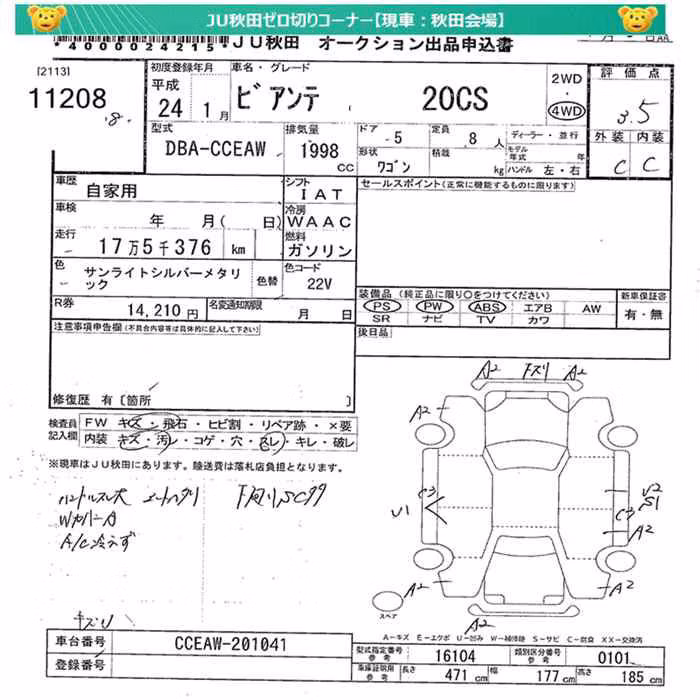 JU秋田ゼロ切りコーナー【現車：秋田会場】
*4000024215*JU秋田 オークション出品申込書
[2113]
11208
8
初度登録年月
平成
24 1月
車名・グレード
ビアンテ 20CS
2WD
・
4WD
評価点
3.5
外装 内装
C C
型式
DBA-CCEAW
排気量
1998
CC
ドア
5
定員
8人
形状
ワゴン
積載
kg
ディーラー・並行
モデル
年式 年
ハンドル 左・右
車歴
自家用
シフト
IAT
車検
年 月( 日)
冷房
WAAC
走行
17万5千376 km
燃料
ガソリン
色
サンライトシルバーメタリ
ック
色替
色コード
22V
R券
14,210円
名変通知期限
月 日
セールスポイント(正常に機能するものに限ります)
装備品(純正品に限り○をつけてください)
PS・PW・ABS・エアB AW
SR ナビ TV カワ
新車保証書
有・無
後日品
注意事項申告欄(不具合内容等は具体的に記入して下さい)
修復歴 有[箇所 ]
検査員
記入欄
FW キズ・飛石・ヒビ割・リペア跡・×要
内装 キズ・汚レ・コゲ・穴・スレ・キレ・破レ
※現車はJU秋田にあります。陸送費は落札店負担となります。
ハンドルスレ大
Wカバー A
A/C冷えず
下廻りSC
キズリ
A2 下ズリ A2
A2
U1
C3
U2
S1
C3
A2
A2
A2
A2
スペア
A-キズ E-エクボ U-凹み W-補修跡 S-サビ C-腐食 XX-交換済
車台番号
CCEAW-201041
登録番号
型式指定番号
参考
16104
類別区分番号
参考
0101
車庫証明用
参考
長さ
471 cm
幅
177 cm
高さ
185 cm